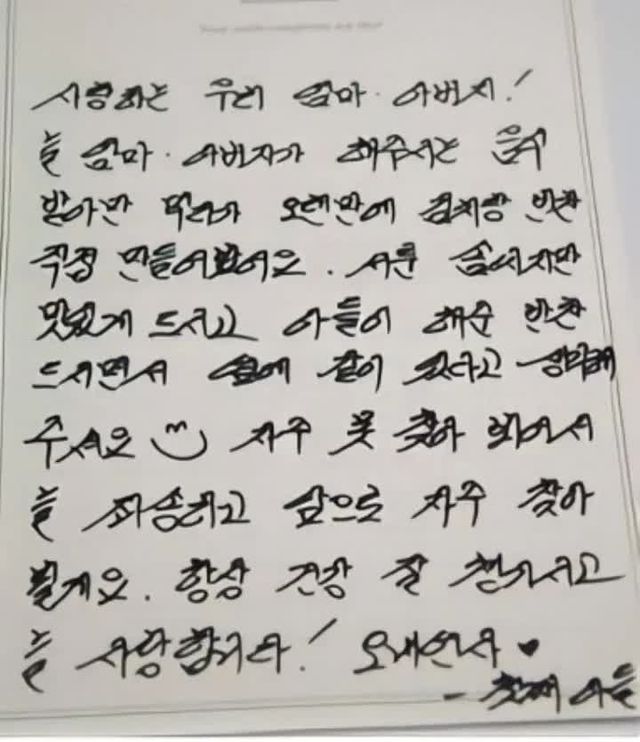 사랑하는 우리 엄마·아버지!
늘 엄마·아버지가 해주시는 음식
받아만 먹다가 오랜만에 김치랑 반찬
직접 만들어봤어요. 서툰 솜씨지만
맛있게 드시고 아들이 해준 반찬
드시면서 옆에 같이 있다고 생각해
주세요 자주 못 찾아 봬어서
늘 죄송하고 앞으로 자주 찾아
뵐게요. 항상 건강 잘 챙기시고
늘 사랑합니다! ♥
- 첫째 아들